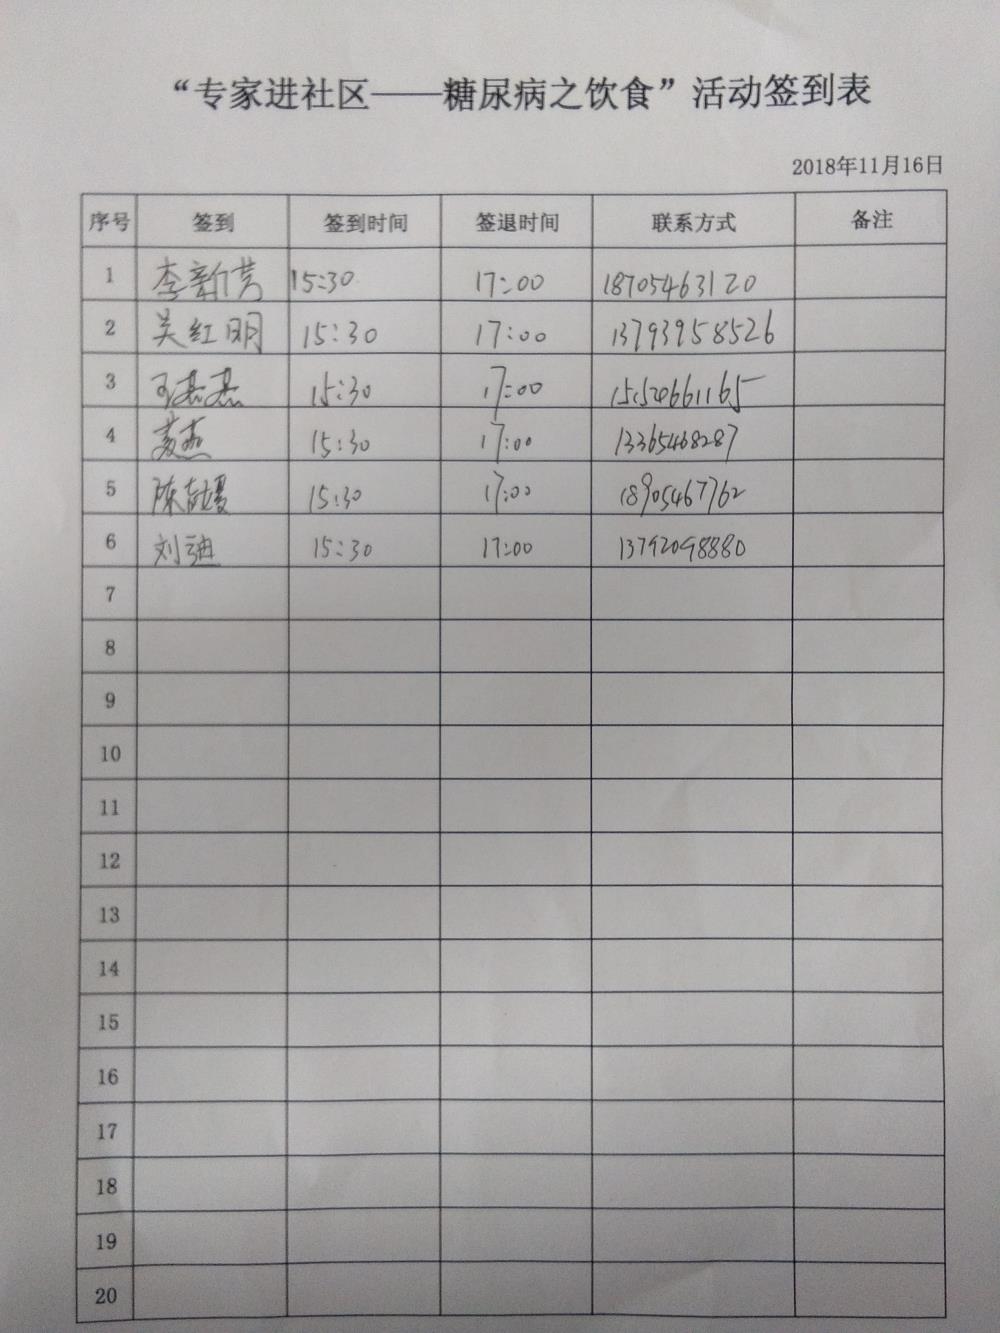 “专家进社区——糖尿病之饮食”活动签到表
2018年11月16日
序号 签到 签到时间 签退时间 联系方式 备注
1 李新芳 15:30 17:00 18705463120
2 吴红明 15:30 17:00 13793958526
3 15:30 17:00 15152066 1165
4 15:30 17:00 13365468287
5 陈 15:30 17:00 18905467762
6 刘迪 15:30 17:00 13792098880
7
8
9
10
11
12
13
14
15
16
17
18
19
20